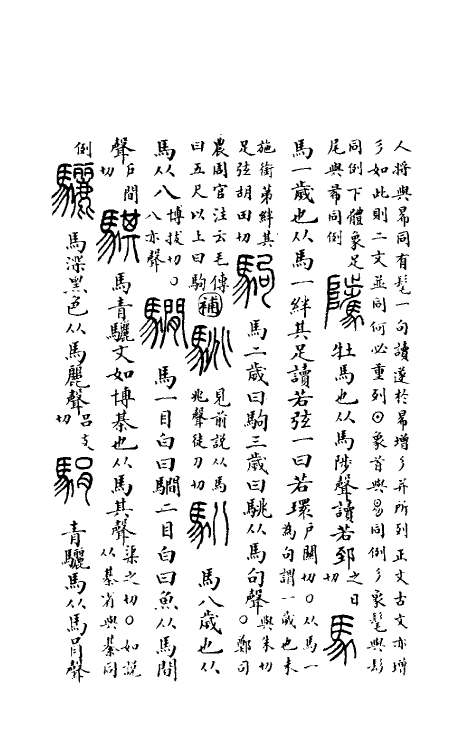 人將與昜同有髦一句讀遂於昜增彡并所列正文古文亦增
彡如此則二文並同何必重列⊙象首與易同例彡象髦與髟
同例下體象足
尾與希同例
騭牡馬也从馬陟聲讀若郅之日切
馬一歲也从馬一絆其足讀若弦一曰若環戶關切○从馬一
為句謂一歲也未
施銜第絆其
足弦胡田切
駒馬二歲曰駒三歲曰駣从馬句聲舉朱切
○鄭司
農周官注云毛傳
曰五尺以上曰駒
補駣見前說从馬
兆聲徒刀切
馬八歲也从
馬从八博拔切○
八亦聲
馬一目白曰瞯二目白曰魚从馬閒
聲戶閒
切
騏馬青驪文如博棊也从馬其聲渠之切○如說
从綦省與綦同
例
驪馬深黑色从馬麗聲呂支
切
駽青驪馬从馬肙聲